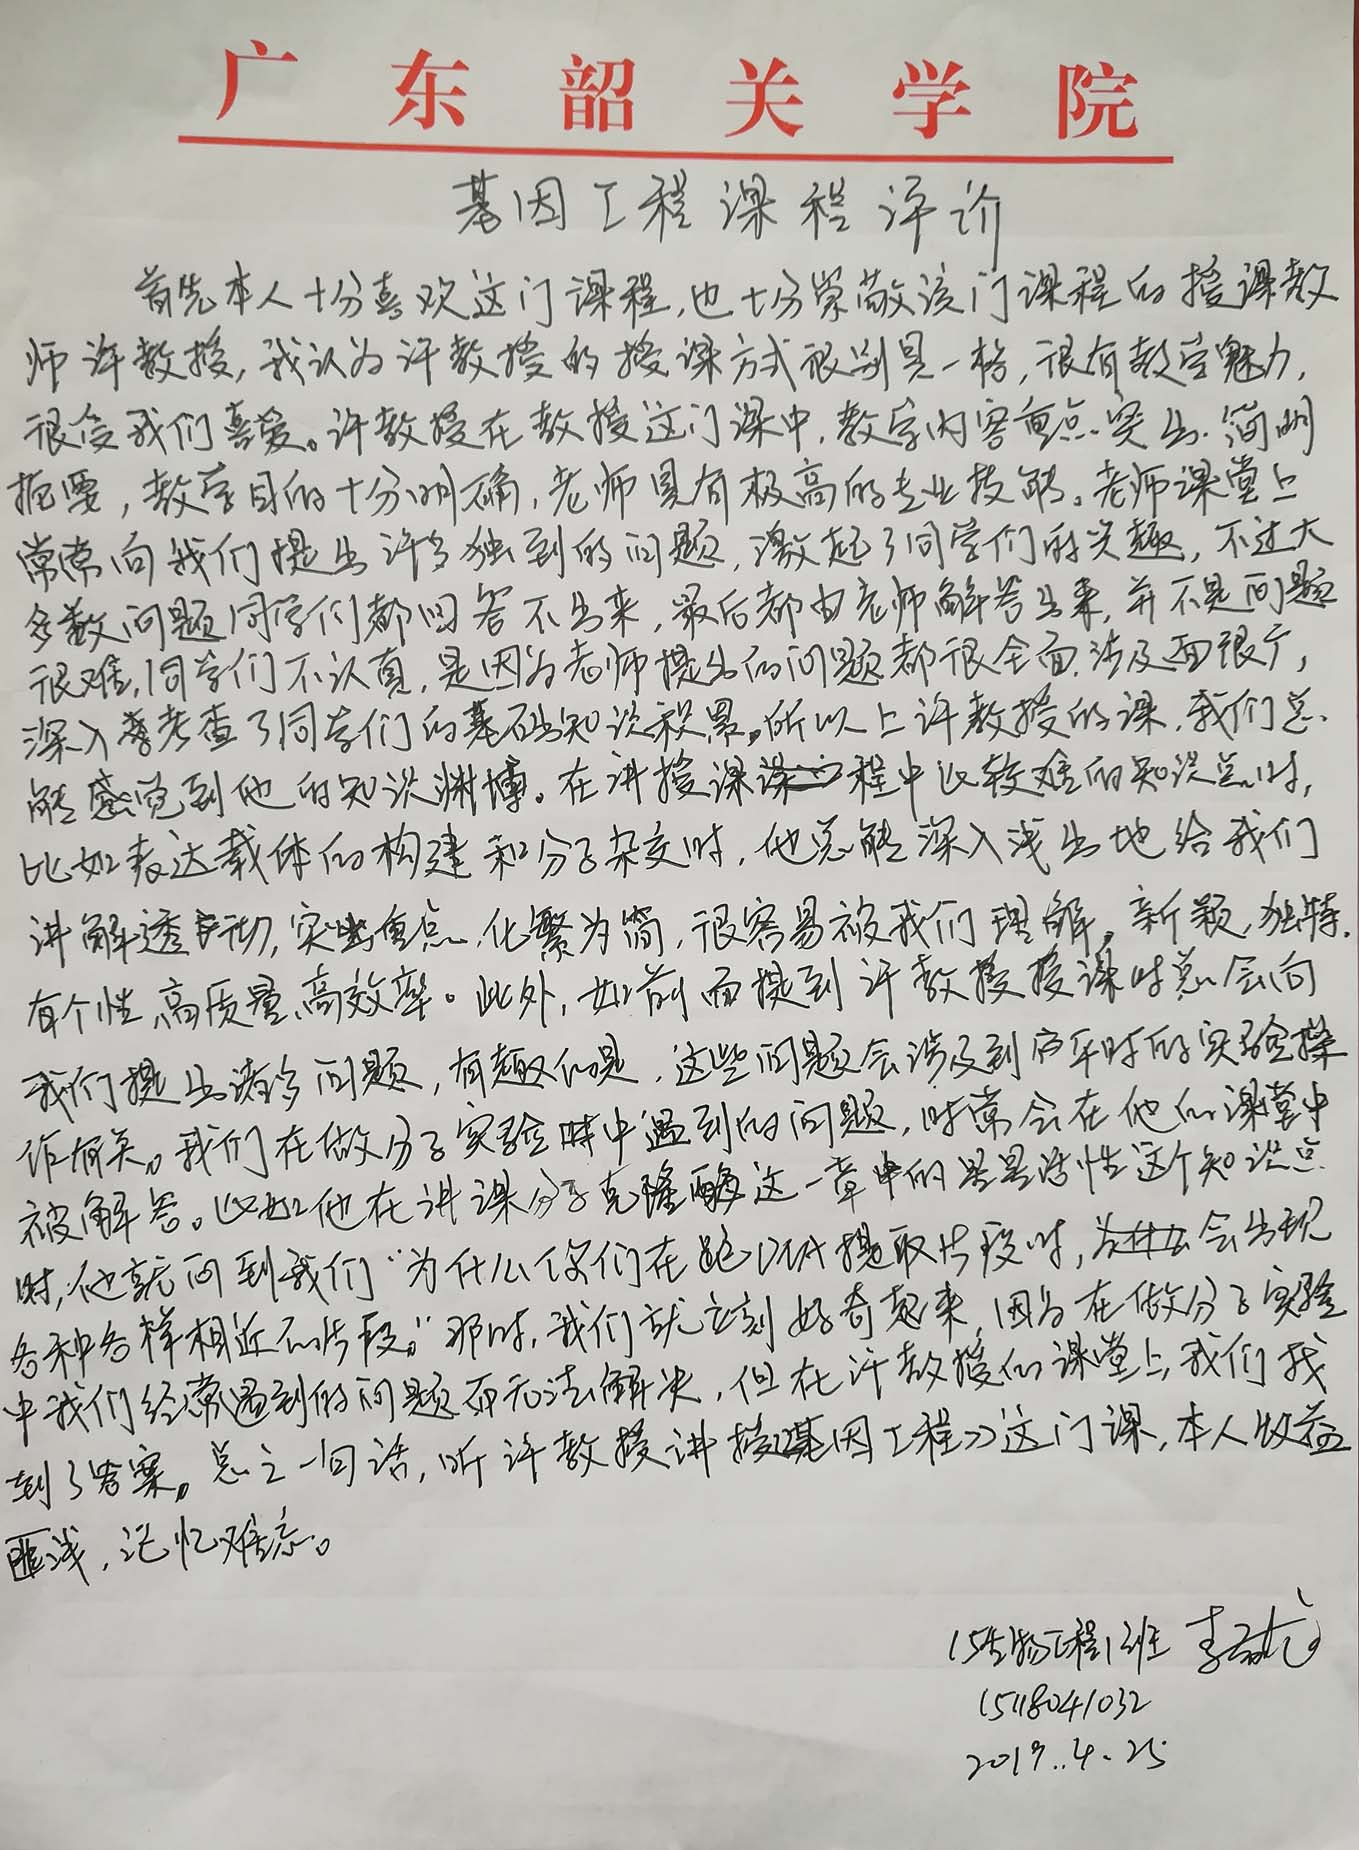 广东韶关学院
基因工程课程评价
首先本人十分喜欢这门课程,也十分崇敬该门课程的授课教
师许教授,我认为许教授的授课方式很别具一格,很有教学魅力,
很受我们喜爱。许教授在教授这门课中,教学内容重点突出.简明
扼要,教学目的十分明确,老师具有极高的专业技能。老师课堂上
常常向我们提出许多独到的问题,激起了同学们的兴趣,不过大
多数问题同学们都回答不出来,最后都由老师解答出来,并不是问题
很难,同学们不认真,是因为老师提出的问题都很全面.涉及面很广,
深入考查了同学们的基础知识积累。所以上许教授的课,我们总
能感觉到他的知识渊博。在讲授课程中比较难的知识点时,
比如表达载体的构建和分子杂交时,他总能深入浅出地给我们
讲解透彻,突出重点,化繁为简,很容易被我们理解。新颖,独特.
有个性,高质量,高效率。此外,如前面提到许教授授课时总会向
我们提出诸多问题,有趣的是,这些问题会涉及到与平时的实验操
作有关。我们在做分子实验时中遇到的问题,时常会在他的课堂中
被解答。比如他在讲课分子克隆酶这一章中的星号活性这个知识点
时,他就问到我们“为什么你们在跑DNA提取片段时,会出现
各种各样相近的片段。”那时,我们就立刻好奇起来,因为在做分子实验
中我们经常遇到的问题而无法解决,但在许教授的课堂上,我们找
到了答案。总之一句话,听许教授讲授《基因工程》这门课,本人收益
匪浅,记忆难忘。
15生物工程1班 李
15118041032
2019.4.25